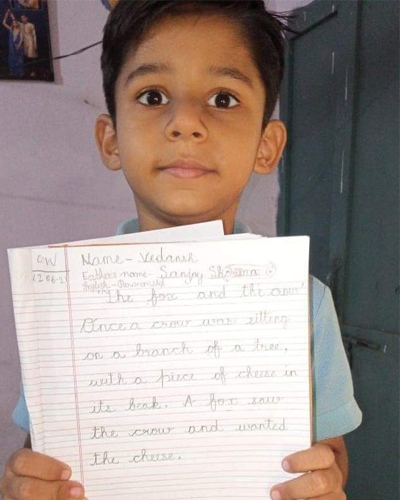 CW
Name - Vedansh
12 06-21
Father name - Sanjay Sharma
"The fox and the crow"
Once a crow was sitting
on a branch of a tree,
with a piece of cheese in
its beak. A fox saw
the crow and wanted
the cheese.